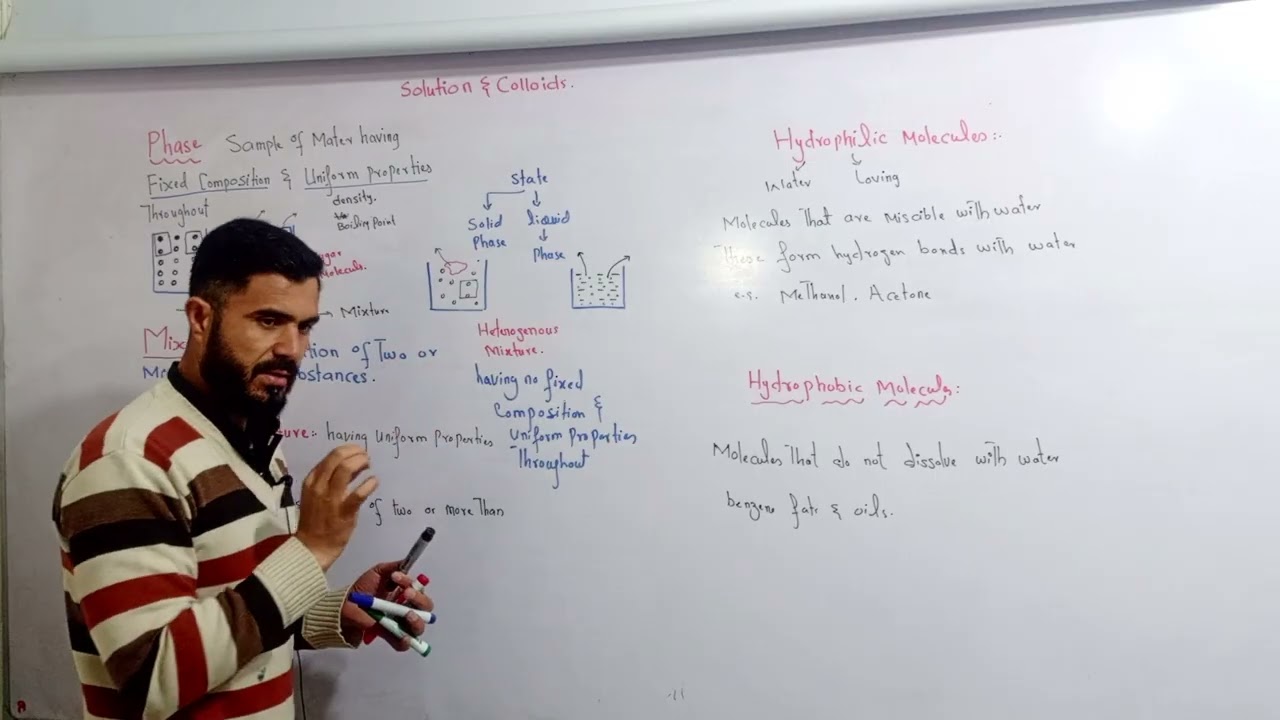 Solution & Colloids.
Phase Sample of Mater having
Fixed Composition & Uniform Properties
Throughout
density.
Boiling Point
Mixture
State
Solid
Phase
liquid
Phase
Heterogenous
Mixture.
having no fixed
Composition &
Uniform Properties
Throughout
of Two or
having Uniform Properties
of two or more Than
Hydrophilic Molecules:-
water
Loving
Molecules That are miscible with water
These form hydrogen bonds with water
e.g. Methanol. Acetone
Hydrophobic Molecules:
Molecules That do not dissolve with water
benzene fats & oils.